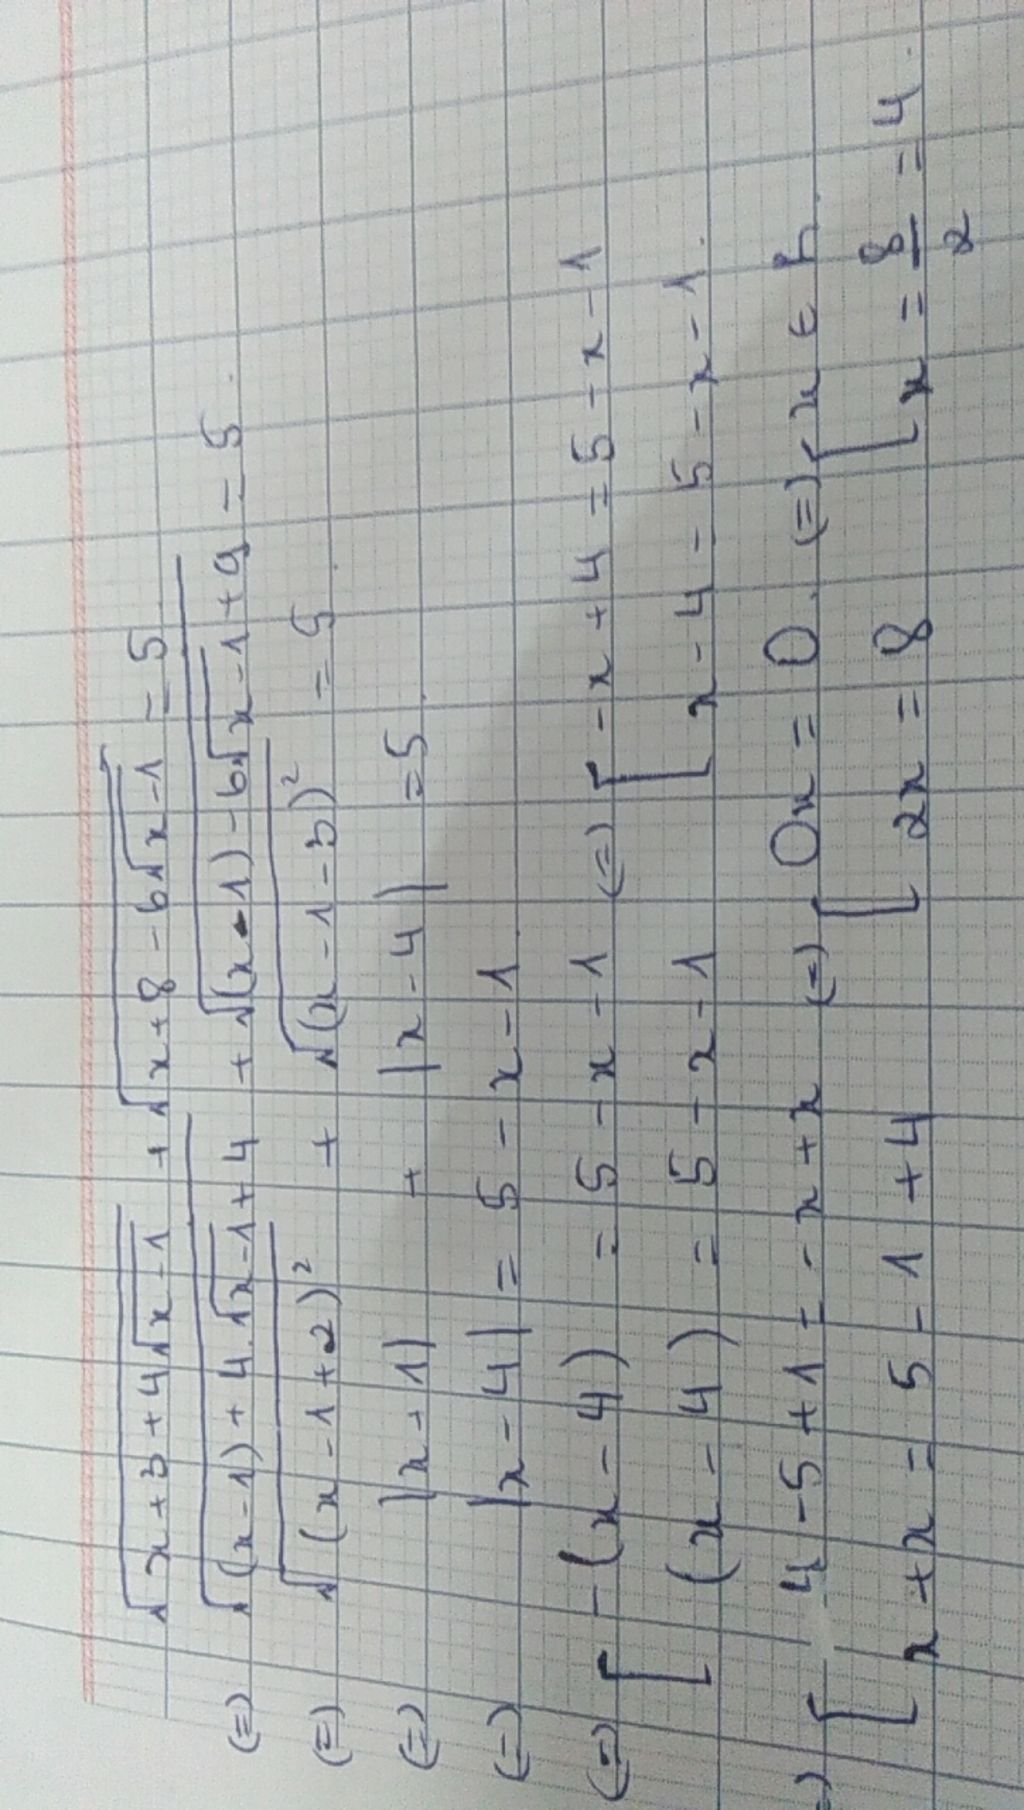 √(x+3+4√(x-1)) + √(x+8-6√(x-1)) = 5
(=) √((x-1)+4.√(x-1)+4) + √((x-1)-6√(x-1)+9) = 5.
(=) √((x-1+2)²) + √((x-1-3)²) = 5
(=) |x+1| + |x-4| = 5
(=) |x-4| = 5-x-1
(=) [ -(x-4) = 5-x-1 (=) [ -x+4 = 5-x-1
(x-4) = 5-x-1 [ x-4 = 5-x-1.
(=) [ 4-5+1 = -x+x (=) [ 0x = 0. (=) [ x ∈ R
x+x = 5-1+4 [ 2x = 8 [ x = 8/2 = 4.